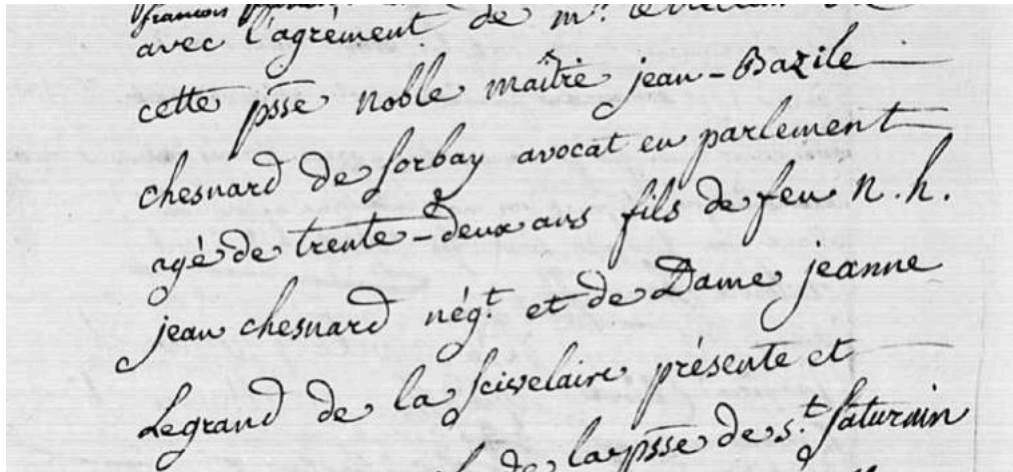 françois
avec l'agrément de mr.
cette psse noble maître jean-Bazile
chesnard de sorbay avocat en parlement
agé de trente-deux ans fils de feu n. h.
jean chesnard négt. et de Dame jeanne
Legrand de la présente et
de la psse de st. saturnin